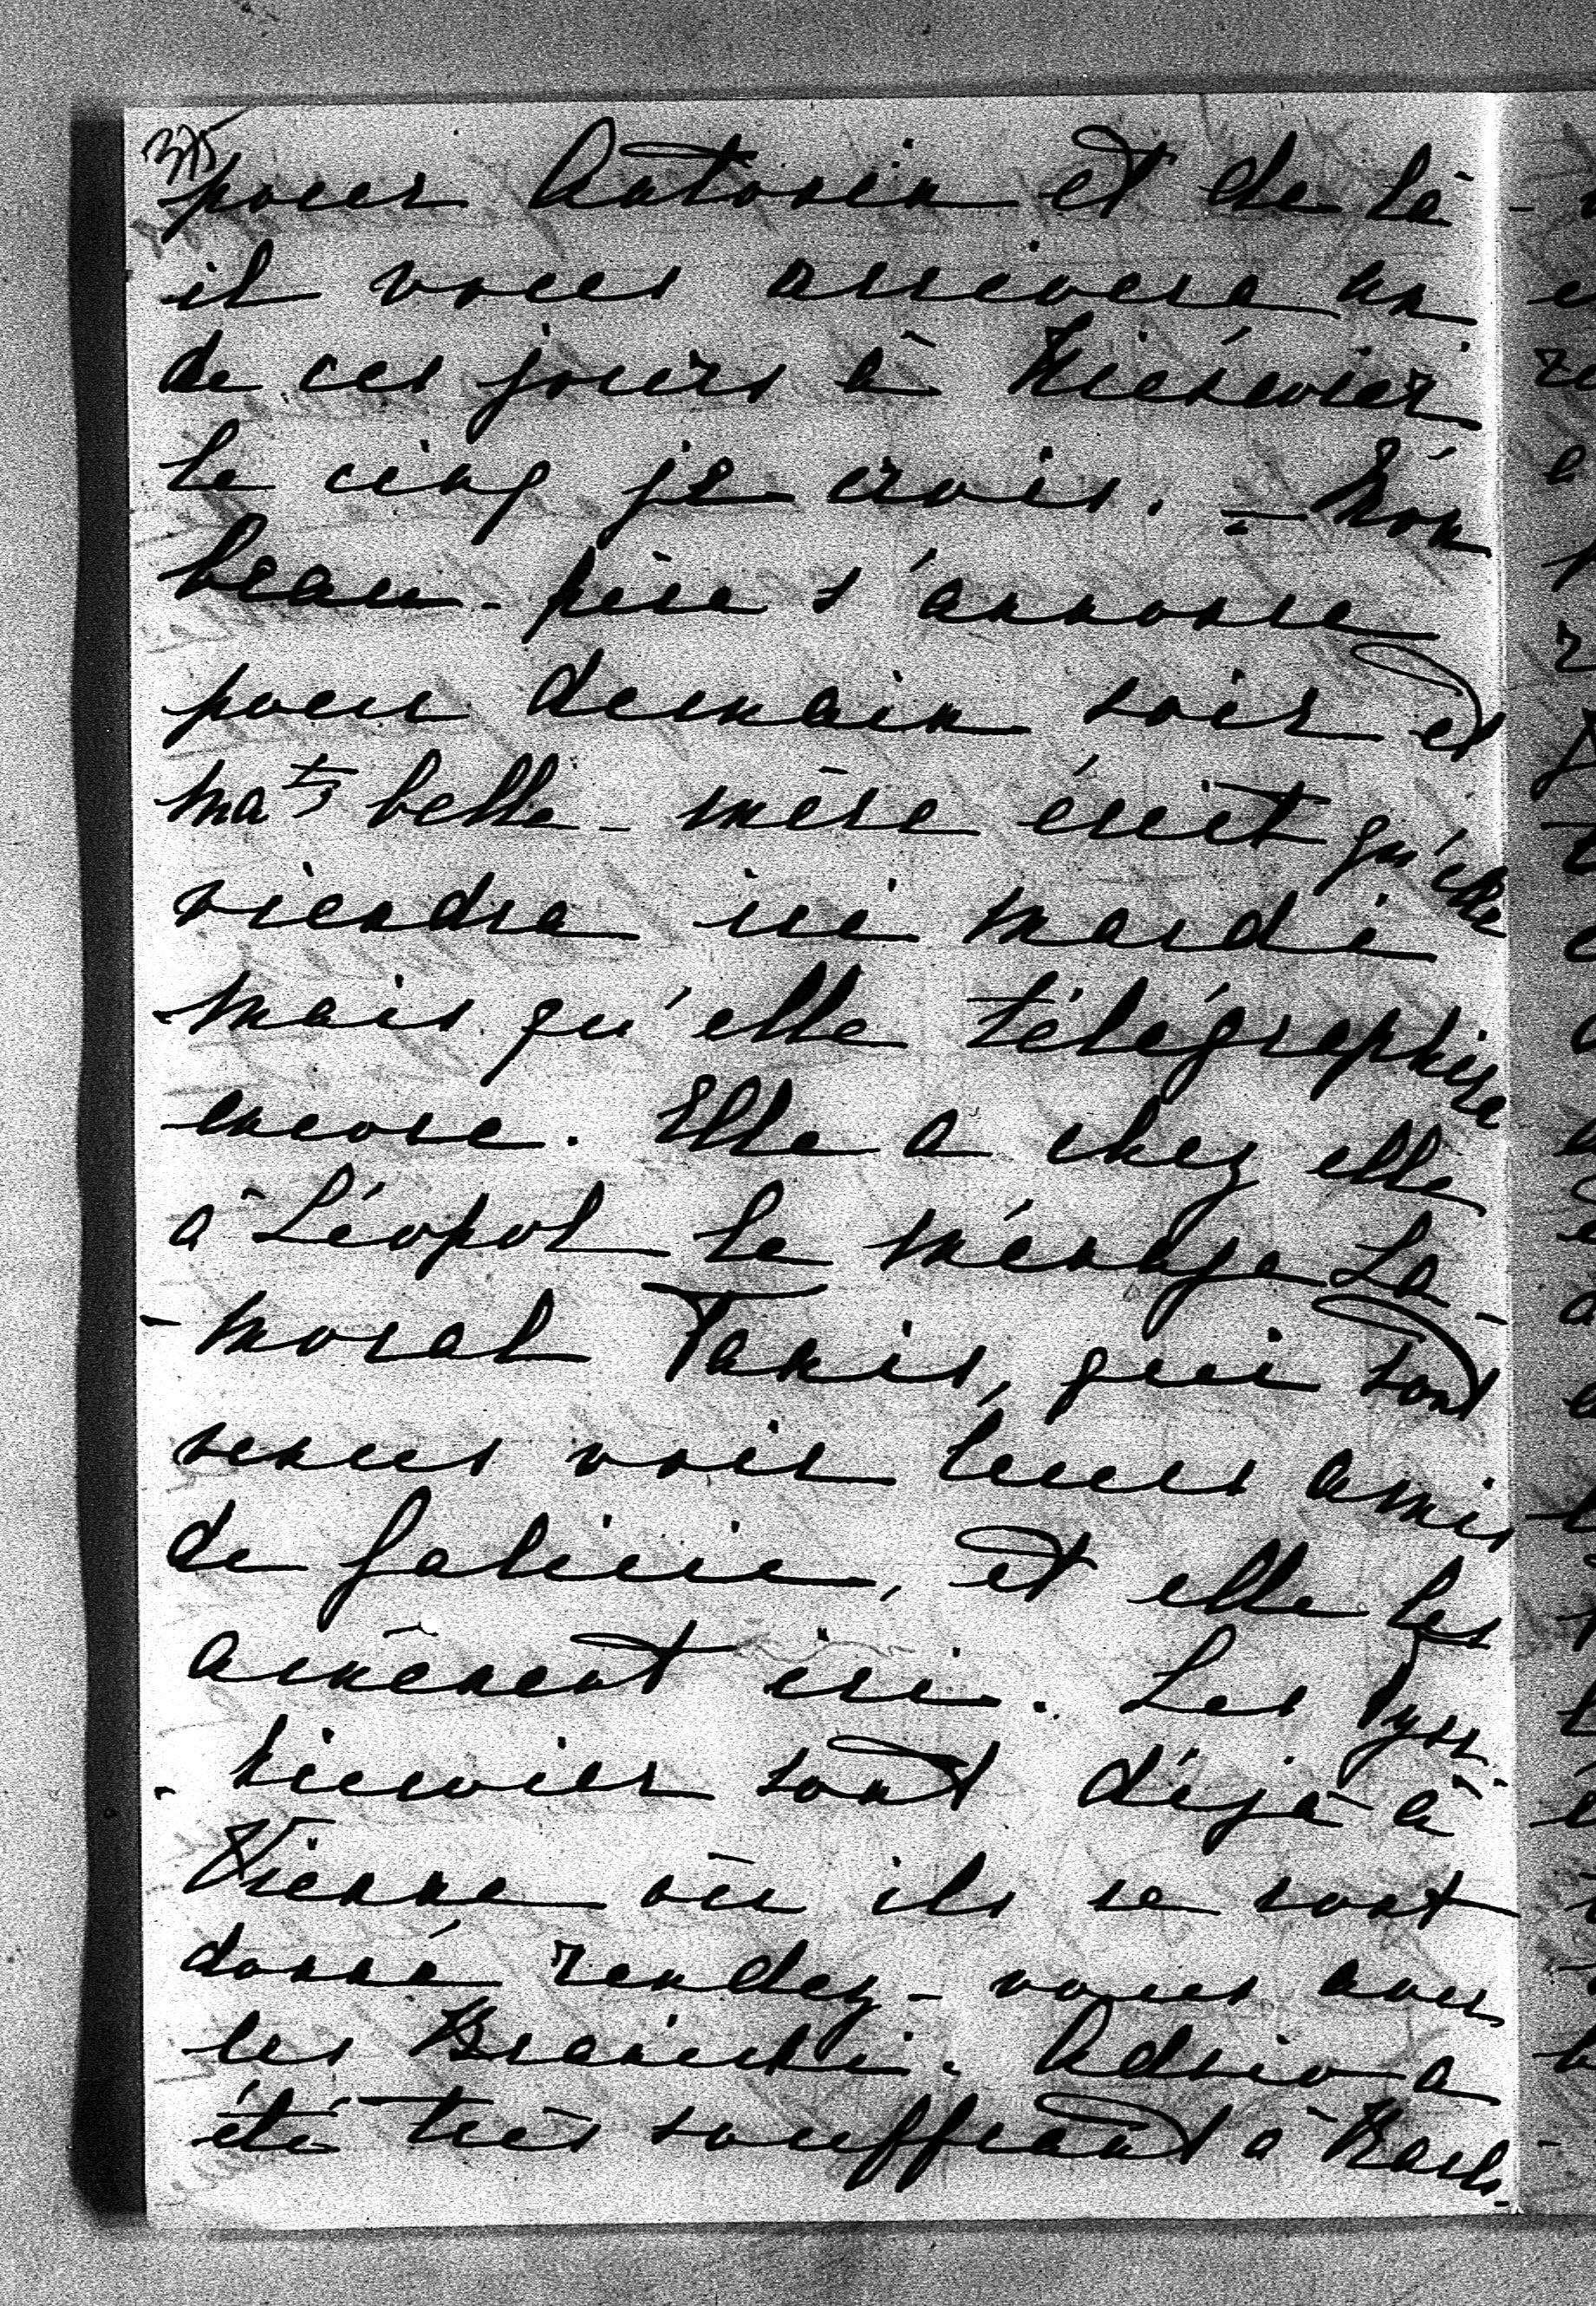 375
pour Antonin et de là
il vous arrivera un
de ces jours à Nieświez
le cinq je crois. – Mon
beau-père s'annonce
pour demain soir et
ma belle-mère écrit qu'elle
viendra ici mardi
mais qu'elle télégraphiera
encore. Elle a chez elle
à Léopol le ménage La-
-moral Taxis, qui sont
venus voir leurs amis
de Galicie, et elle les
amènent ici. Les Tysz-
-kiewicz sont déjà à
Vienne où ils se sont
donné rendez-vous avec
les Branicki. Adzio a
été très souffrant à Karls-